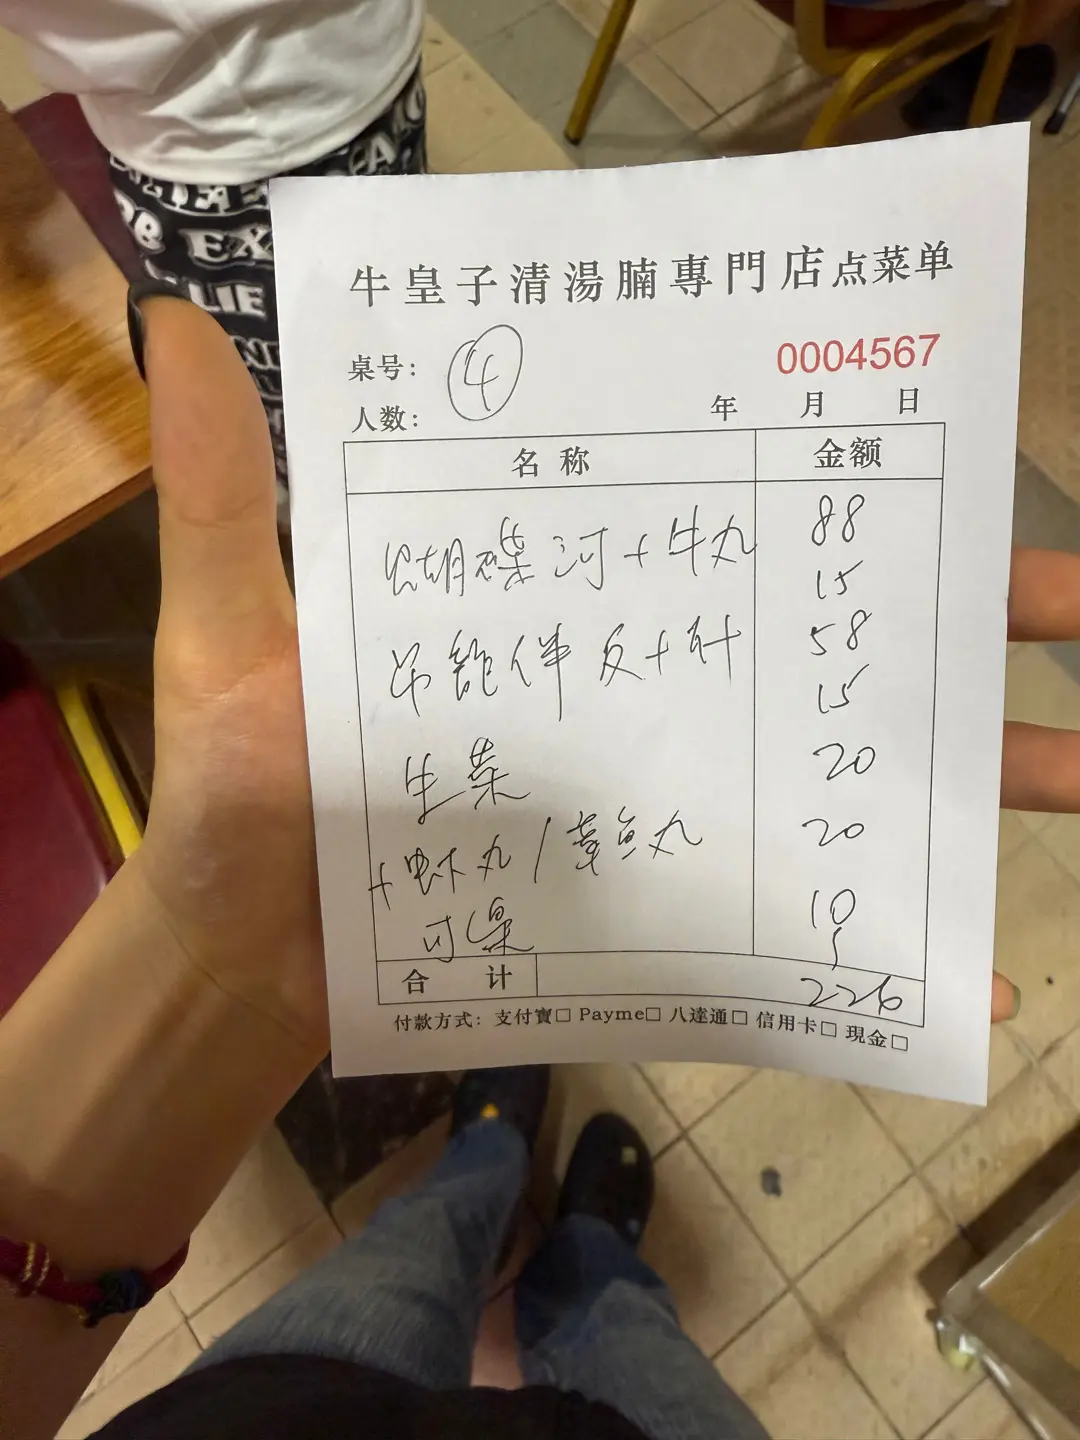 牛皇子清湯腩專門店点菜单
桌号： 4
0004567
人数：
年 月 日
名称 金额
蝴蝶河+牛丸 88
15
58
15
生菜 20
+虾丸/章魚丸 20
可樂 10
5
合计 226
付款方式：支付寶□ Payme□ 八達通□ 信用卡□ 現金□
EX
LIE